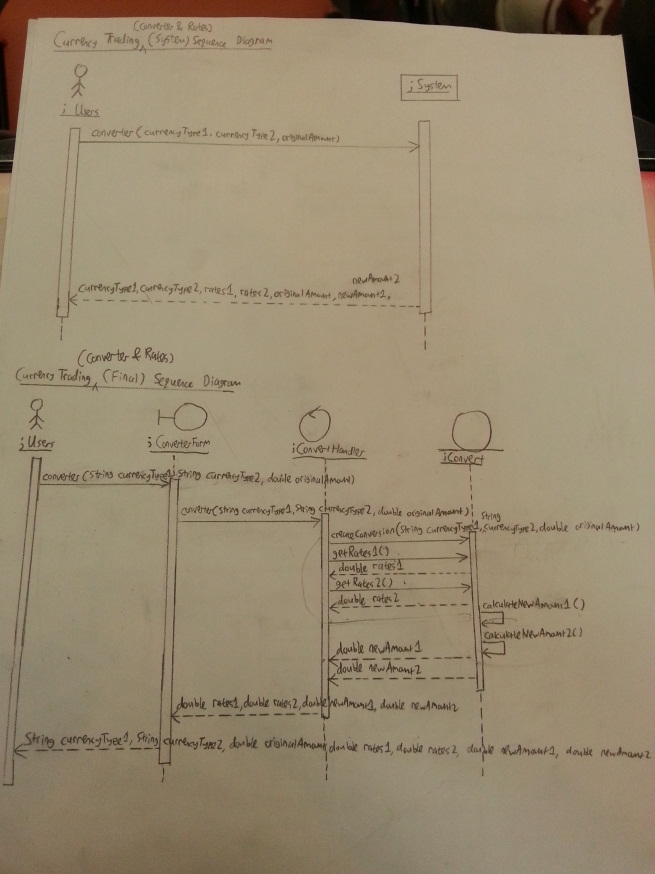 (Converter & Rates)
Currency Trading ^ (System) Sequence Diagram
; Users
; System
converter (currencyType1, currencyType2, originalAmount)
newAmount2
currencyType1, currencyType2, rates1, rates2, originalAmount, newAmount1,
(Converter & Rates)
Currency Trading ^ (Final) Sequence Diagram
; Users
; ConverterForm
; ConvertHandler
; Convert
converter (String currencyType1, String currencyType2, double originalAmount)
converter(String currencyType1, String currencyType2, double originalAmount)
String
createConversion(String currencyType1, currencyType2, double originalAmount)
getRates1()
double rates1
getRates2()
double rates2
calculateNewAmount1()
calculateNewAmount2()
double newAmount1
double newAmount2
double rates1, double rates2, double newAmount1, double newAmount2
String currencyType1, String currencyType2, double originalAmount, double rates1, double rates2, double newAmount1, double newAmount2